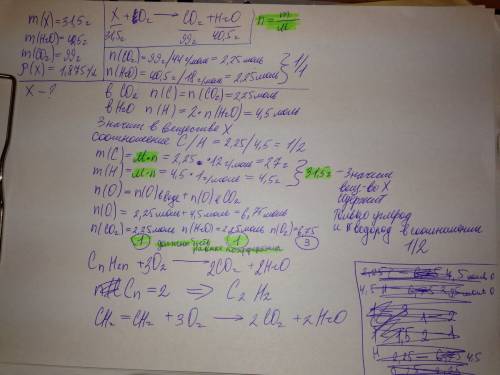 m(X)=31,5г
m(H₂O)=40,5г
m(CO₂)=99г
ρ(X)=1,875г/л
X - ?
X + O₂ → CO₂ + H₂O
31,5г 99г 40,5г
n = m/M
n(CO₂) = 99г/44г/моль = 2,25моль
n(H₂O) = 40,5г/18г/моль = 2,25моль } 1/1
в CO₂ n(C) = n(CO₂) = 2,25моль
в H₂O n(H) = 2·n(H₂O) = 4,5моль
Значит в веществе X
соотношение C/H = 2,25/4,5 = 1/2
m(C) = M·n = 2,25 · 12г/моль = 27г
m(H) = M·n = 4,5·1г/моль = 4,5г } 31,5г
- Значит
вещ-во X
содержит
только углерод
и водород в соотношении
1/2
n(O) = n(O) в воде + n(O) в CO₂
n(O) = 2,25моль + 4,5моль = 6,75моль
n(CO₂) = 2,25моль n(H₂O) = 2,25моль n(O₂) = 6,75
1 1 3
CnH2n + 3O₂ → 2CO₂ + 2H₂O
Cn = 2 ⇒ C₂H₂
CH₂ = CH₂ + 3O₂ → 2CO₂ + 2H₂O